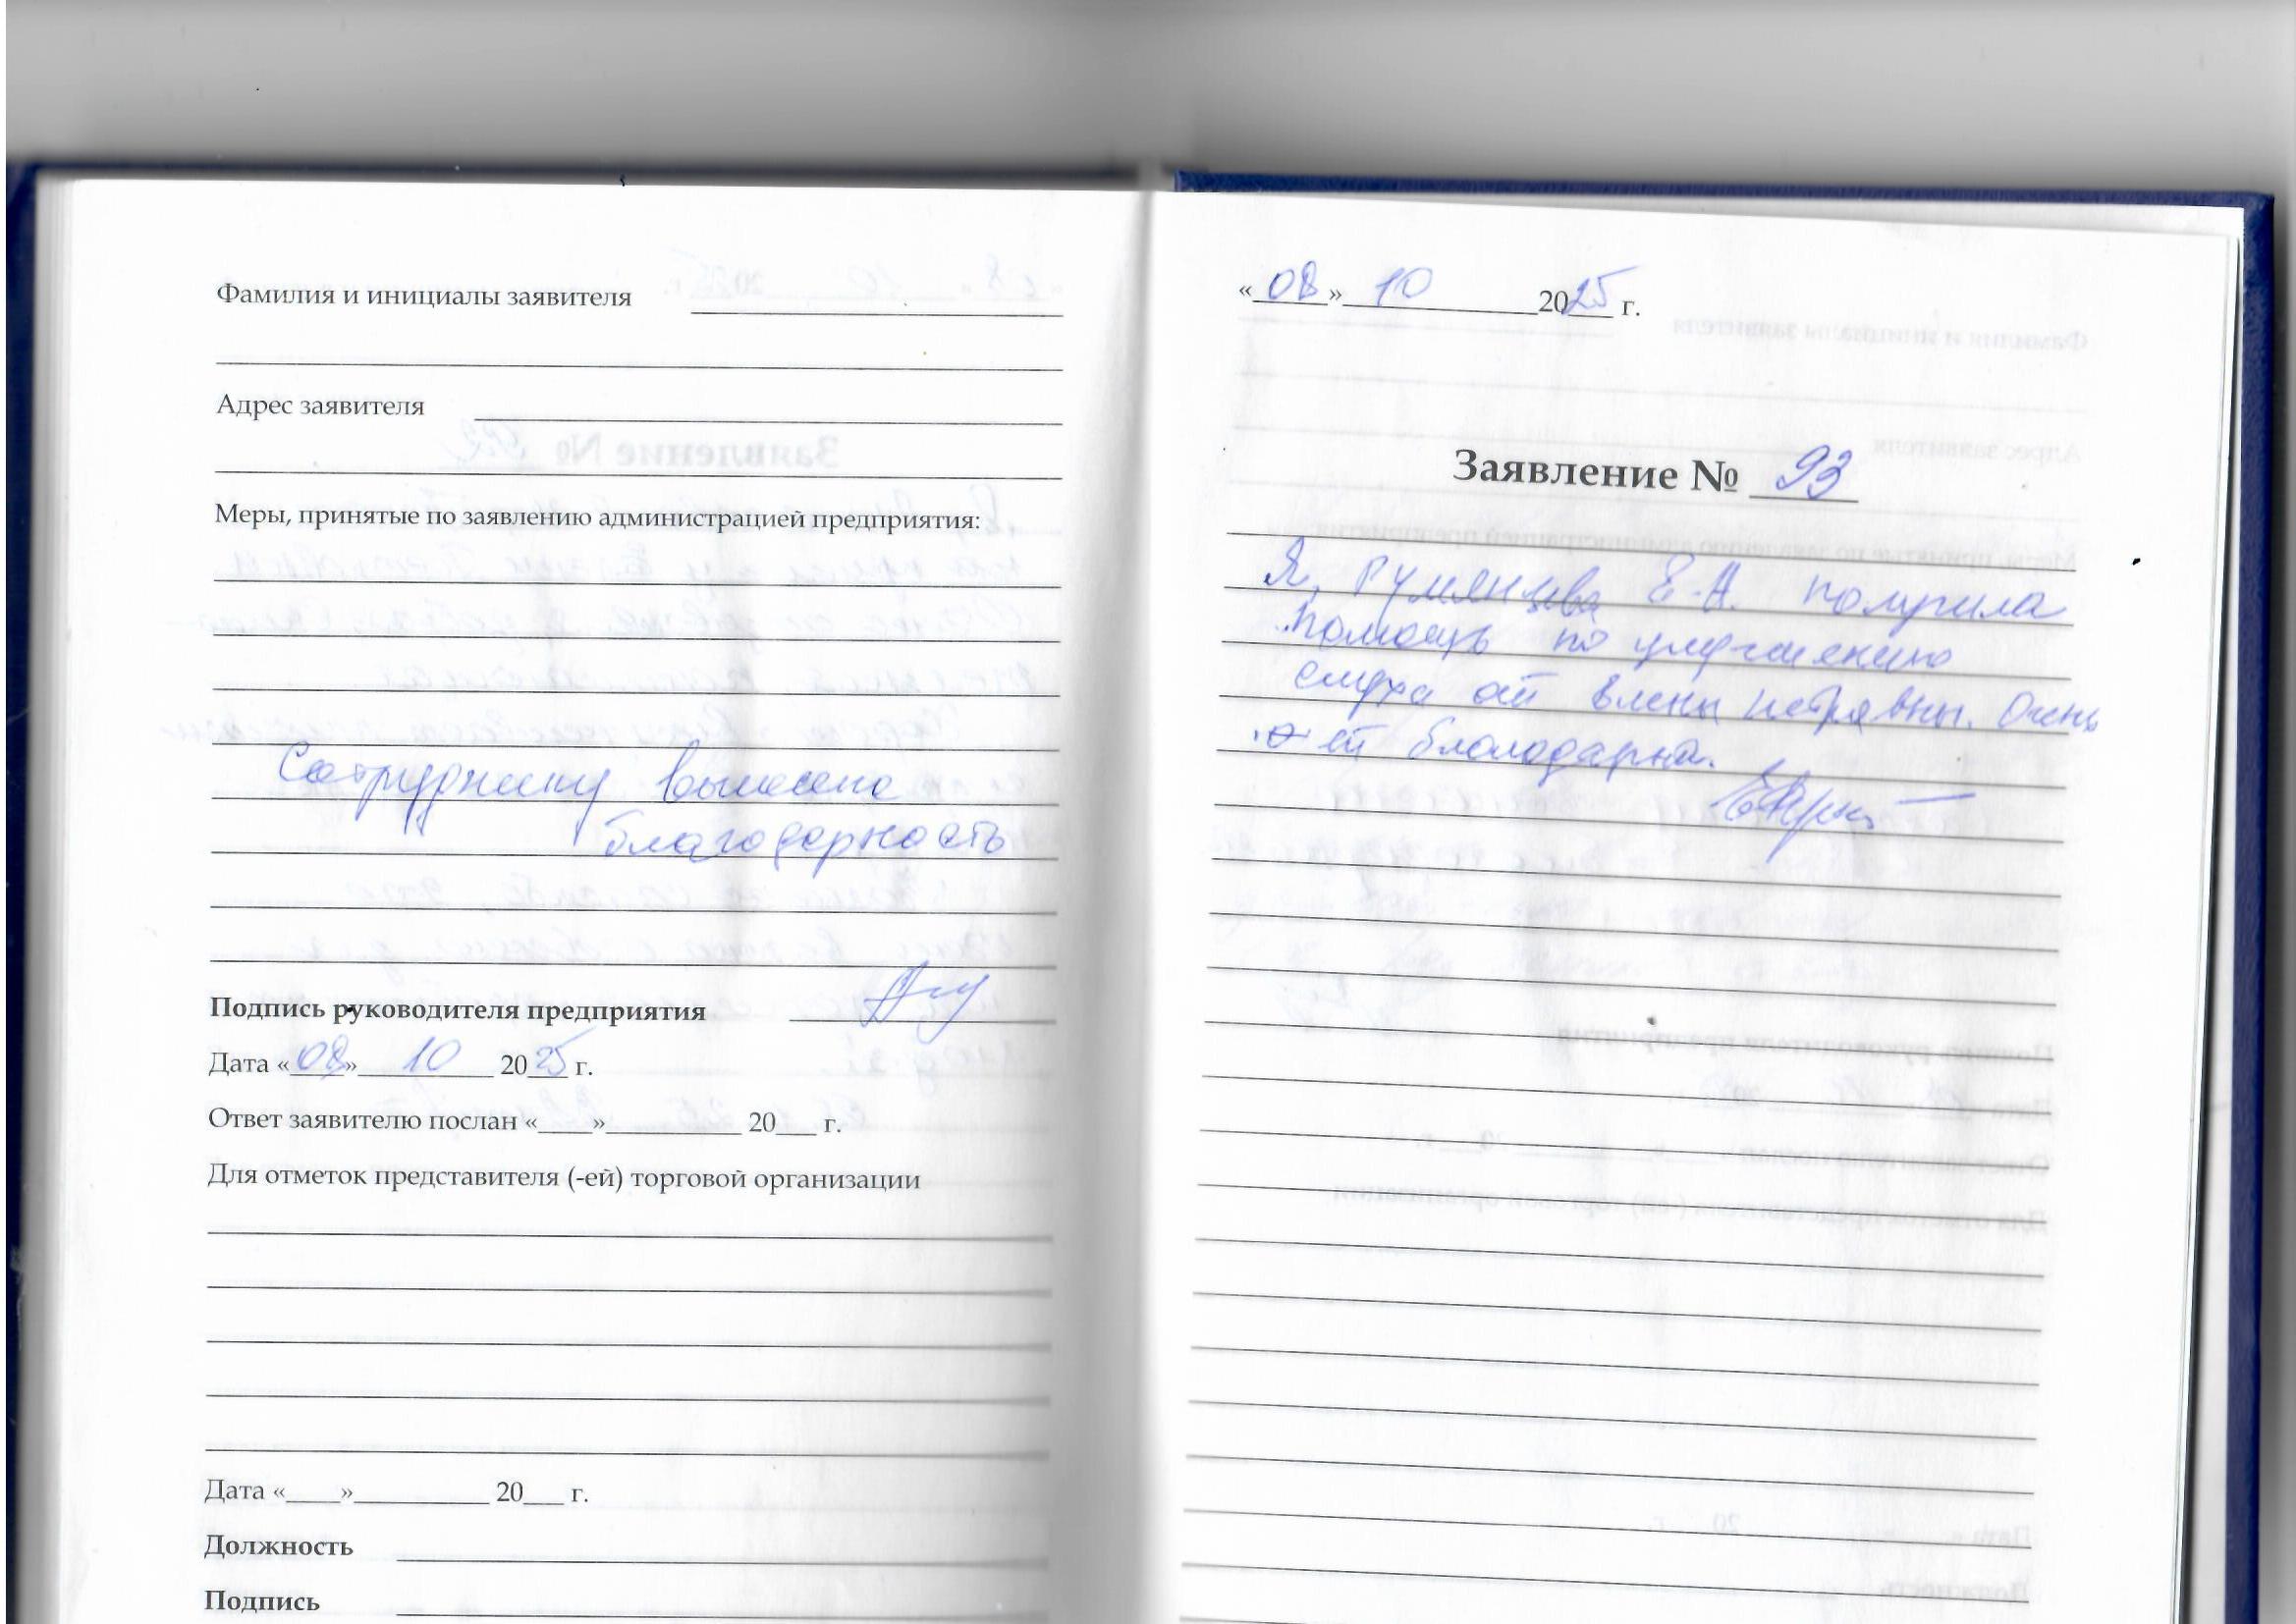 Фамилия и инициалы заявителя
Адрес заявителя
Меры, принятые по заявлению администрацией предприятия:
Сотруднику вынесена
благодарность
Подпись руководителя предприятия
Дата «08» 10 2025 г.
Ответ заявителю послан «____»__________ 20___ г.
Для отметок представителя (-ей) торговой организации
Дата «____»__________ 20___ г.
Должность
Подпись
«08» 10 2025 г.
Заявление № 93
Я, Румянцева Е.А. получила
помощь по улучшению
слуха от Елены Петровны. Очень
ей благодарна.